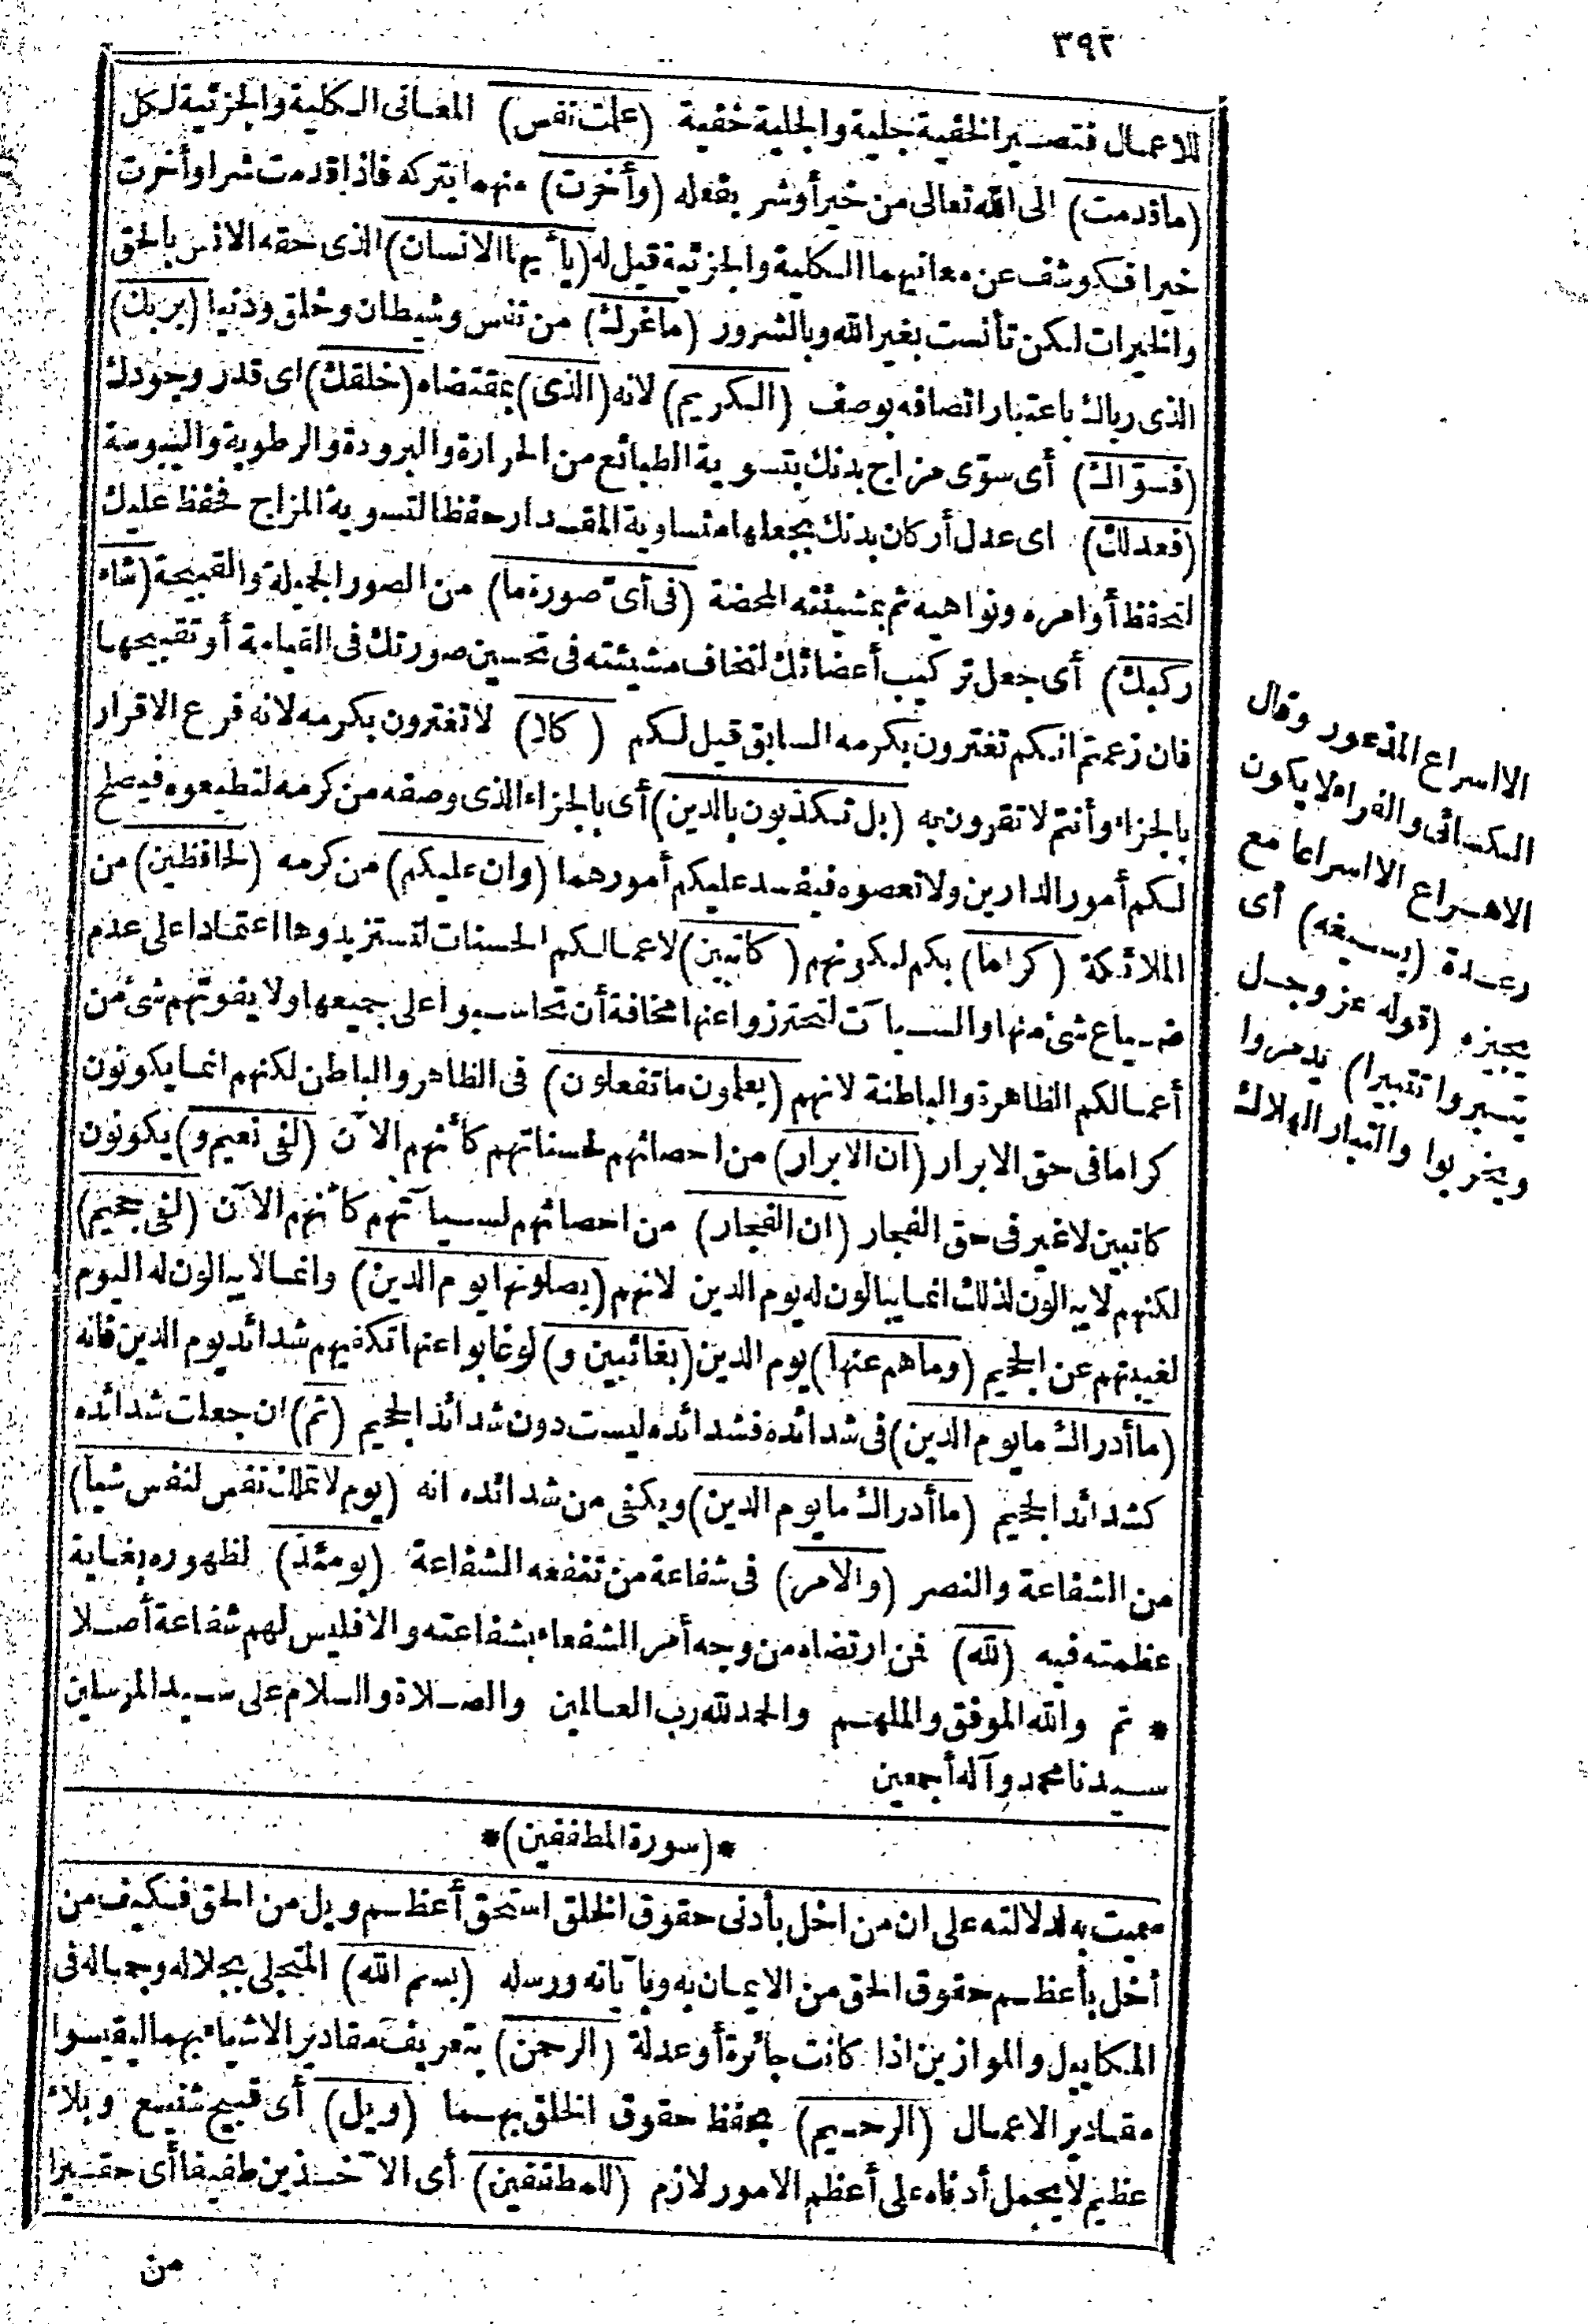 ٣٩٢
للاعمال فتصير الخفية جلية والجلية خفية (علمت نفس) المعانى الكلية والجزئية لكل
(ماقدمت) الى الله تعالى من خير أوشر بفعله (وأخرت) منهما بتركه فاذا قدمت شرا وأخرت
خيرا فكوشف عن معانيهما الكلية والجزئية قيل له (يا أيها الانسان) الذى حقه الانس بالحق
والخيرات لكن تأنست بغير الله وبالشرور (ماغرك) من نفس وشيطان وخلق ودنيا (بربك)
الذى رباك باعتبار اتصافه بوصف (الكريم) لانه (الذى) بمقتضاه (خلقك) اى قدر وجودك
(فسواك) أى سوّى مزاج بدنك بتسوية الطبائع من الحرارة والبرودة والرطوبة واليبوسة
(فعدلك) اى عدل أركان بدنك بجعلها متساوية المقدار حفظا لتسوية المزاج فحفظ عليك
لتحفظ أوامره ونواهيه ثم بمشيئته المحضة (فى أىّ صورة ما) من الصور الجميلة والقبيحة (شاء
ركبك) أى جعل تركيب أعضائك لتخاف مشيئته فى تحسين صورتك فى القيامة أو تقبيحها
فان زعمتم انكم تغترون بكرمه السابق قيل لكم (كلا) لا تغترون بكرمه لانه فرع الاقرار
بالجزاء وأنتم لا تقرون به (بل تكذبون بالدين) أى بالجزاء الذى وصفه من كرمه لتطيعوه فيصلح
لكم أمور الدارين ولا تعصوه فيفسد عليكم أمورهما (وان عليكم) من كرمه (لحافظين) من
الملائكة (كراما) بكم لكونهم (كاتبين) لاعمالكم الحسنات لتستزيدوها اعتمادا على عدم
ضياع شئ منها والسيآت لتحترزوا عنها مخافة أن تحاسبوا على جميعها ولا يفوتهم شئ من
أعمالكم الظاهرة والباطنة لانهم (يعلمون ماتفعلون) فى الظاهر والباطن لكنهم انما يكونون
كراما فى حق الابرار (ان الابرار) من احصائهم لحسناتهم كأنهم الآن (لفى نعيم و) يكونون
كاتبين لاغير فى حق الفجار (ان الفجار) من احصائهم لسيآتهم كأنهم الآن (لفى جحيم)
لكنهم لا يبالون لذلك انما يبالون له يوم الدين لانهم (يصلونها يوم الدين) وانما لا يبالون له اليوم
لغيبتهم عن الجحيم (وماهم عنها) يوم الدين (بغائبين و) لو غابوا عنها تكفيهم شدائد يوم الدين فانه
(ما أدراك مايوم الدين) فى شدائده فشدائده ليست دون شدائد الجحيم (ثم) ان جعلت شدائده
كشدائد الجحيم (ما أدراك مايوم الدين) ويكفى من شدائده انه (يوم لاتملك نفس لنفس شيأ)
من الشفاعة والنصر (والامر) فى شفاعة من تنفعه الشفاعة (يومئذ) لظهوره بغاية
عظمته فيه (لله) فمن ارتضاه من وجه أمر الشفعاء بشفاعته والا فليس لهم شفاعة أصلا
* تم والله الموفق والملهم والحمد لله رب العالمين والصلاة والسلام على سيد المرسلين
سيدنا محمد وآله أجمعين
*(سورة المطففين)*
سميت به لدلالته على ان من اخل بأدنى حقوق الخلق استحق أعظم ويل من الحق فكيف من
أخل بأعظم حقوق الحق من الايمان به وبآياته ورسله (بسم الله) المتجلى بجلاله وجماله فى
المكاييل والموازين اذا كانت جائرة أو عدلة (الرحمن) بتعريف مقادير الاشياء بهما ليقيسوا
مقادير الاعمال (الرحيم) بحفظ حقوق الخلق بهما (ويل) أى قبيح شنيع وبلاء
عظيم لايحمل أدناه على أعظم الامور لازم (للمطففين) أى الآخذين طفيفا أى حقيرا
من
الااسراع المذعور وقال
الكسائى والفراء لا يكون
الاهراع الا اسراعا مع
رعدة (يسيغه) أى
يجيزه (قوله عز وجل
تتبيرا) يدمروا
ويخربوا والتبار الهلاك